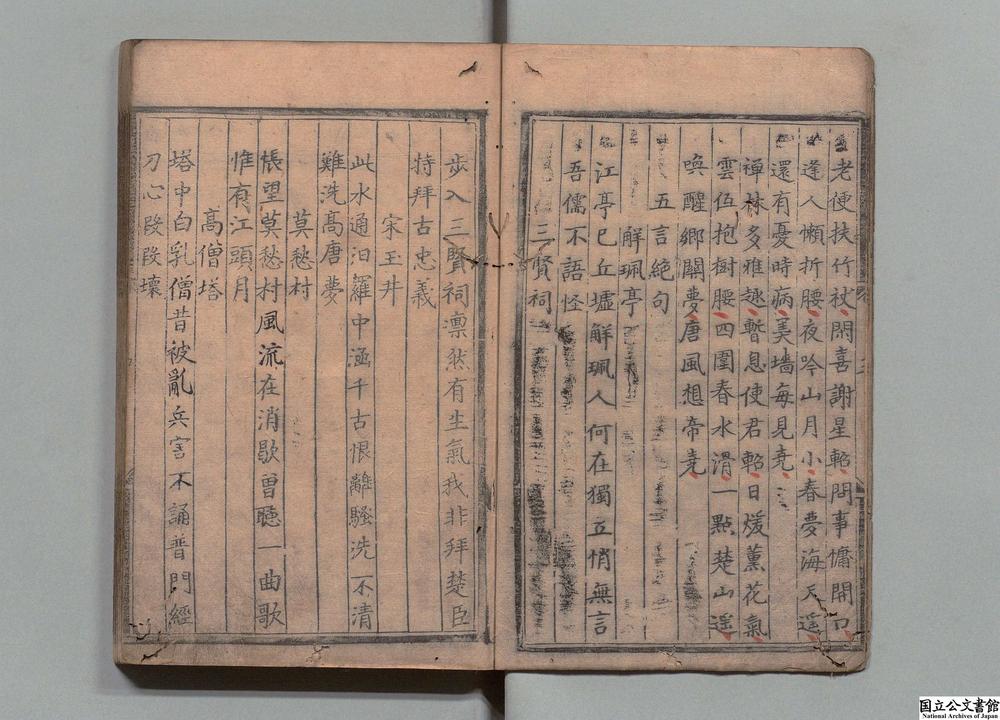 老便扶竹杖閑喜謝星軺問事慵開口
逢人懶折腰夜吟山月小春夢海天遥
還有憂時病羙墻每見堯
禅林多雅趣暫息使君軺日煖薰花氣
雲伍抱樹腰四圍春水滑一點楚山遥
喚醒鄉關夢唐風想帝堯
五言絶句
解珮亭
江亭已丘墟解珮人何在獨立悄無言
吾儒不語怪
三賢祠
步入三賢祠凛然有生氣我非拜楚臣
特拜古忠義
宋玉井
此水通汨羅中涵千古恨離騷洗不清
難洗高唐夢
莫愁村
悵望莫愁村風流在消歇曾聴一曲歌
惟有江頭月
高僧塔
塔中白乳僧昔被亂兵害不誦普門經
刀心段段壞
国立公文書館
National Archives of Japan